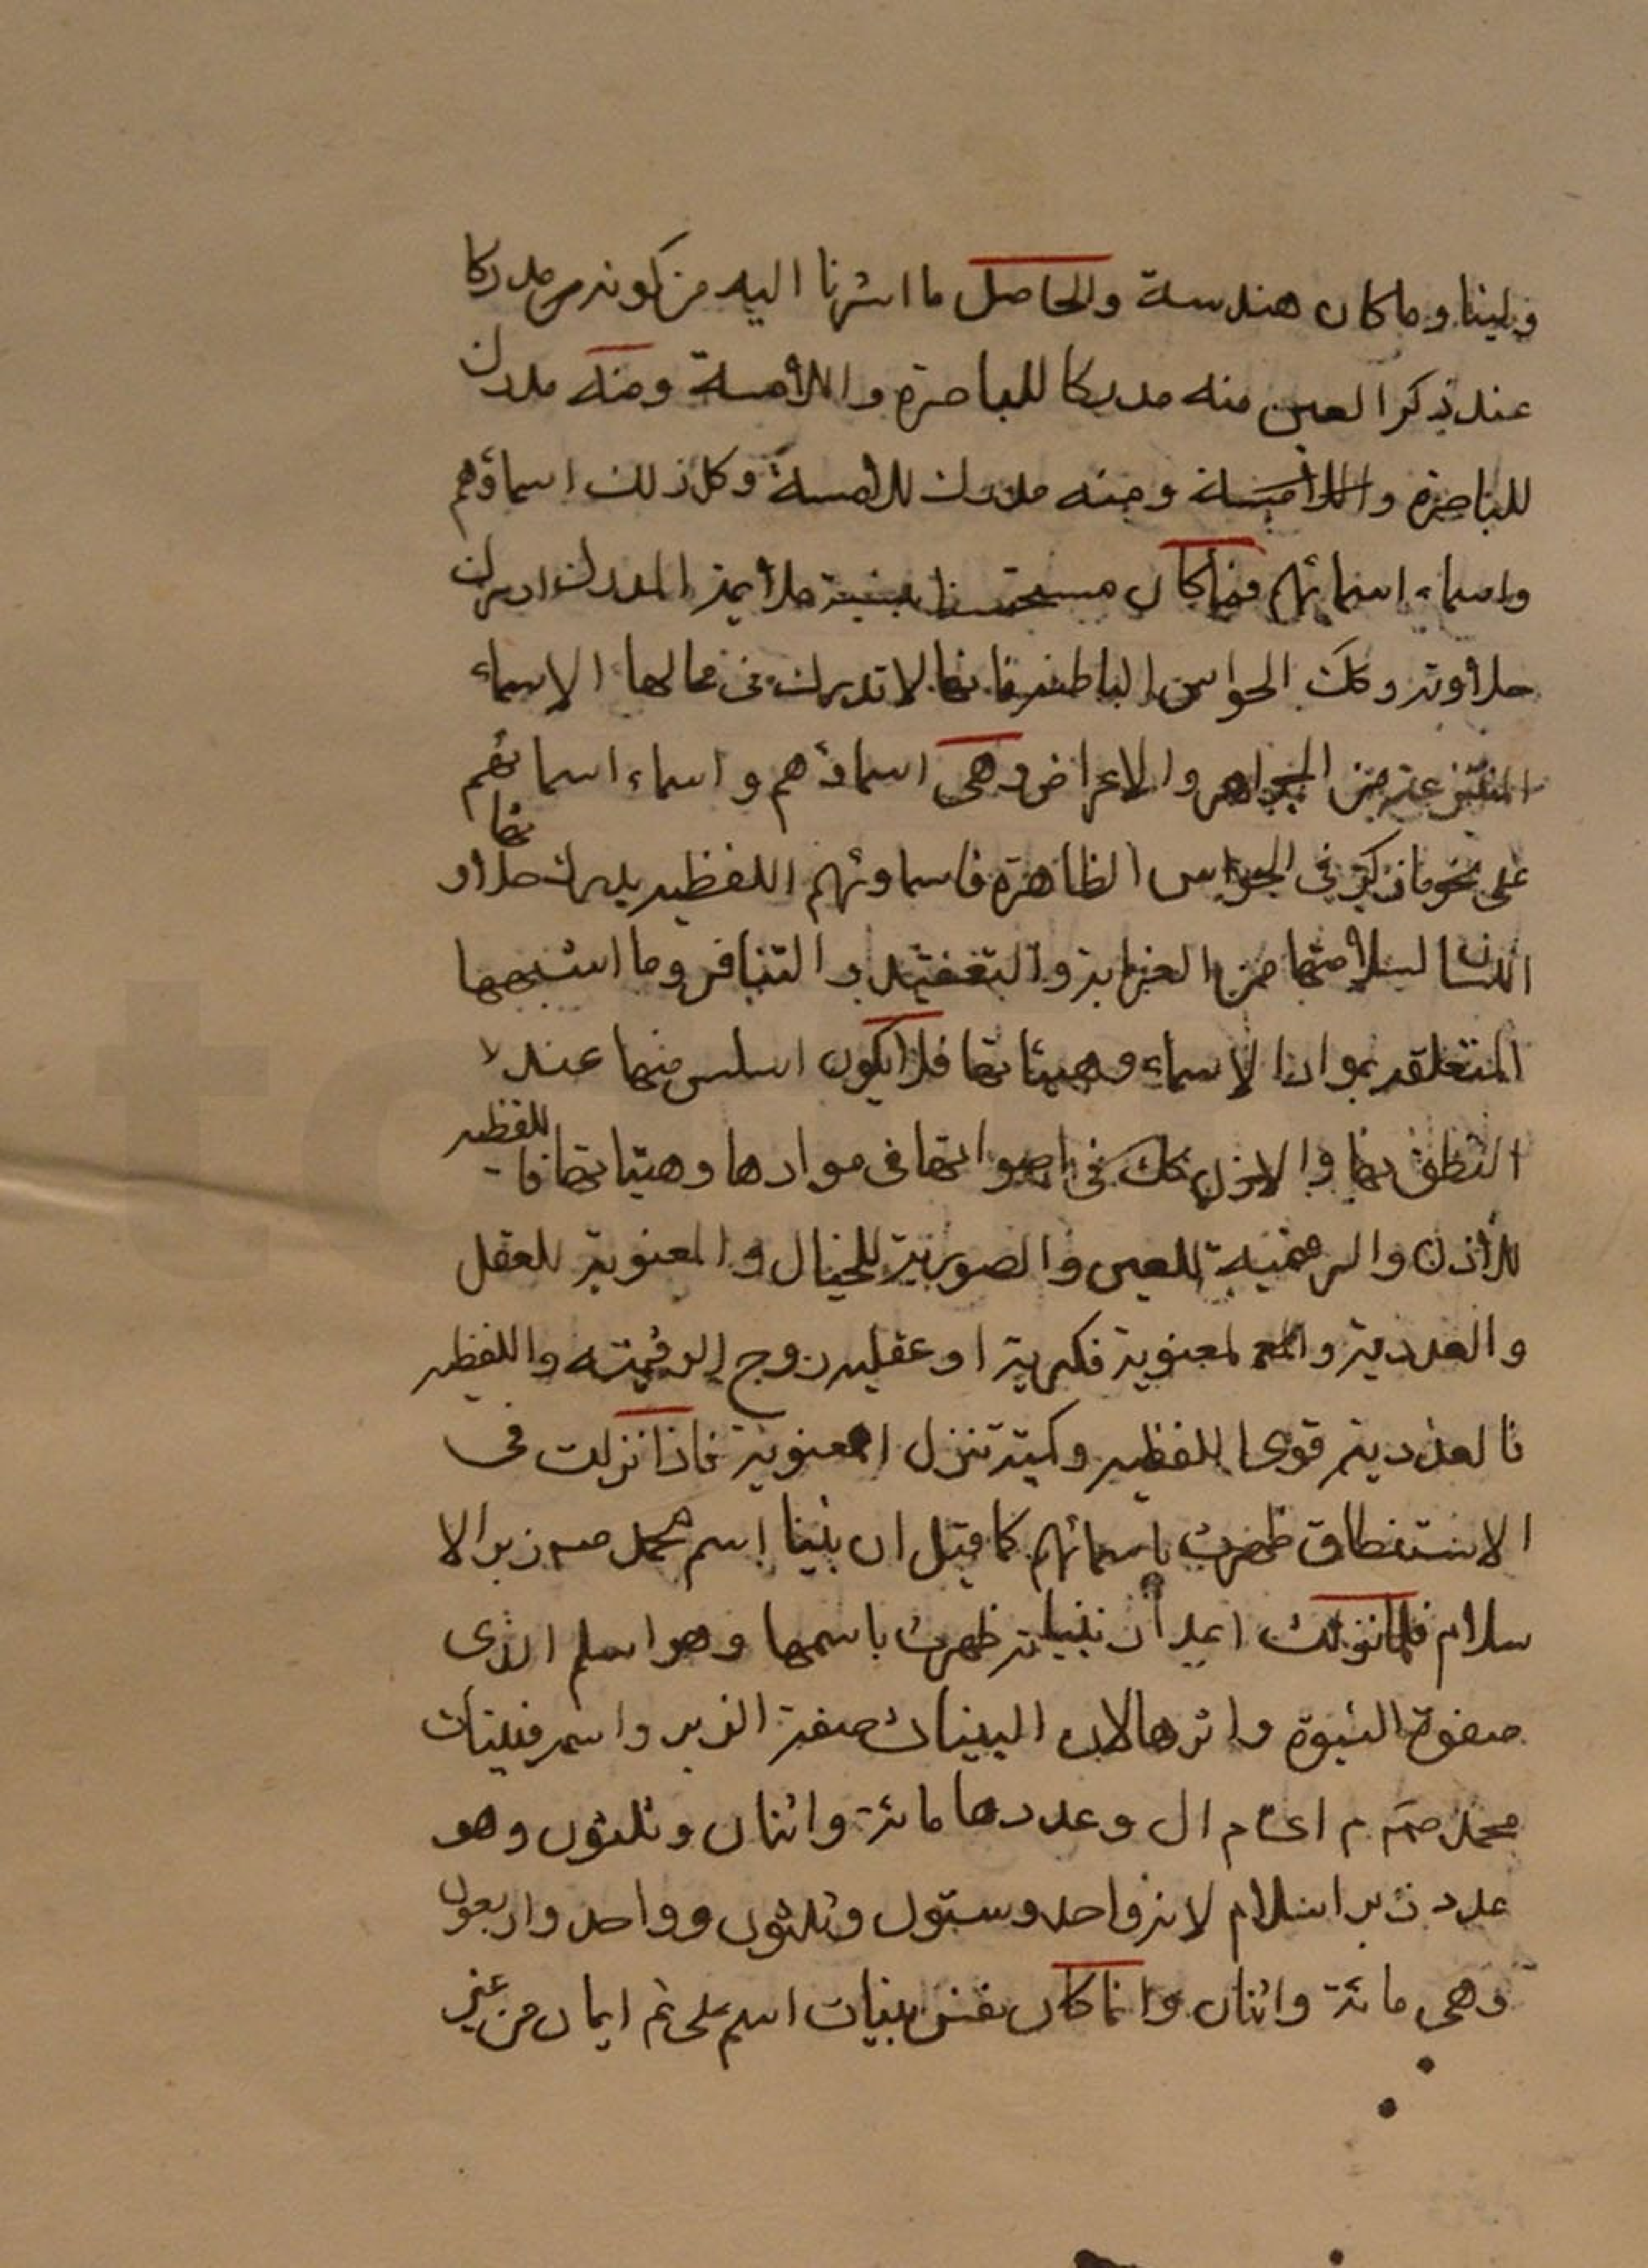 ولينا وما كان هندسة والحاصل ما اشرنا اليه من كونه مدركا
عند ذكر العين منه مدركا للباصرة واللامسة ومنه مدرك
للباصرة واللامسة ومنه مدرك للامسة وكل ذلك اسماؤهم
واسماء اسمائهم فما كان مستحسنا ملايمة المدرك ادرك
حلاوته وكك الحواس الباطنة فانها لا تدرك في محالها الا سماء
المنتزعة من الجواهر والاعراض وهي اسماؤهم واسماء اسمائهم
على نحو ما ذكر في الحواس الظاهرة فاسماوئهم اللفظية يدرك حلاوتها
اللسان لسلامتها من الغرابة والتعقيد والتنافر وما اشبهها
المتعلقة بمواد الاسماء وهيئاتها فلا يكون اسلس منها عند
النطق بها والاذن كك في اصواتها في موادها وهيئاتها فاللفظية
للاذن والرقمية للعين والصورية للخيال والمعنوية للعقل
والعددية والمع لمعنوية فكرية او عقلية روح الرقمية واللفظية
فالعددية قوى اللفظية وكمية تنزل المعنوية فاذا نزلت في
الاستنطاق ظهرت باسمائهم كما قيل ان بينا اسم محمد ص زبر الا
سلام فلما نزلت اعداد بيناته ظهرت باسمها وهو اسلم الذي
صفوة النبوة واثرها لان البينات صفة الزبر واسمه فبينات
محمد ص م ا م ال وعددها مائة واثنان وثلثون وهو
عدد زبر اسلام لانه واحد وستون وثلثون وواحد واربعون
وهي مائة واثنان وانما كان نفس بينات اسم على ع ايمان من غير